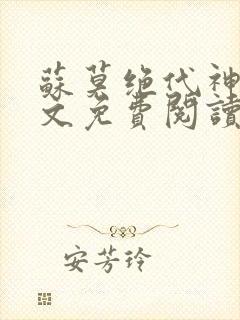 蘇莫绝代神
文免費閱讀
安芳玲